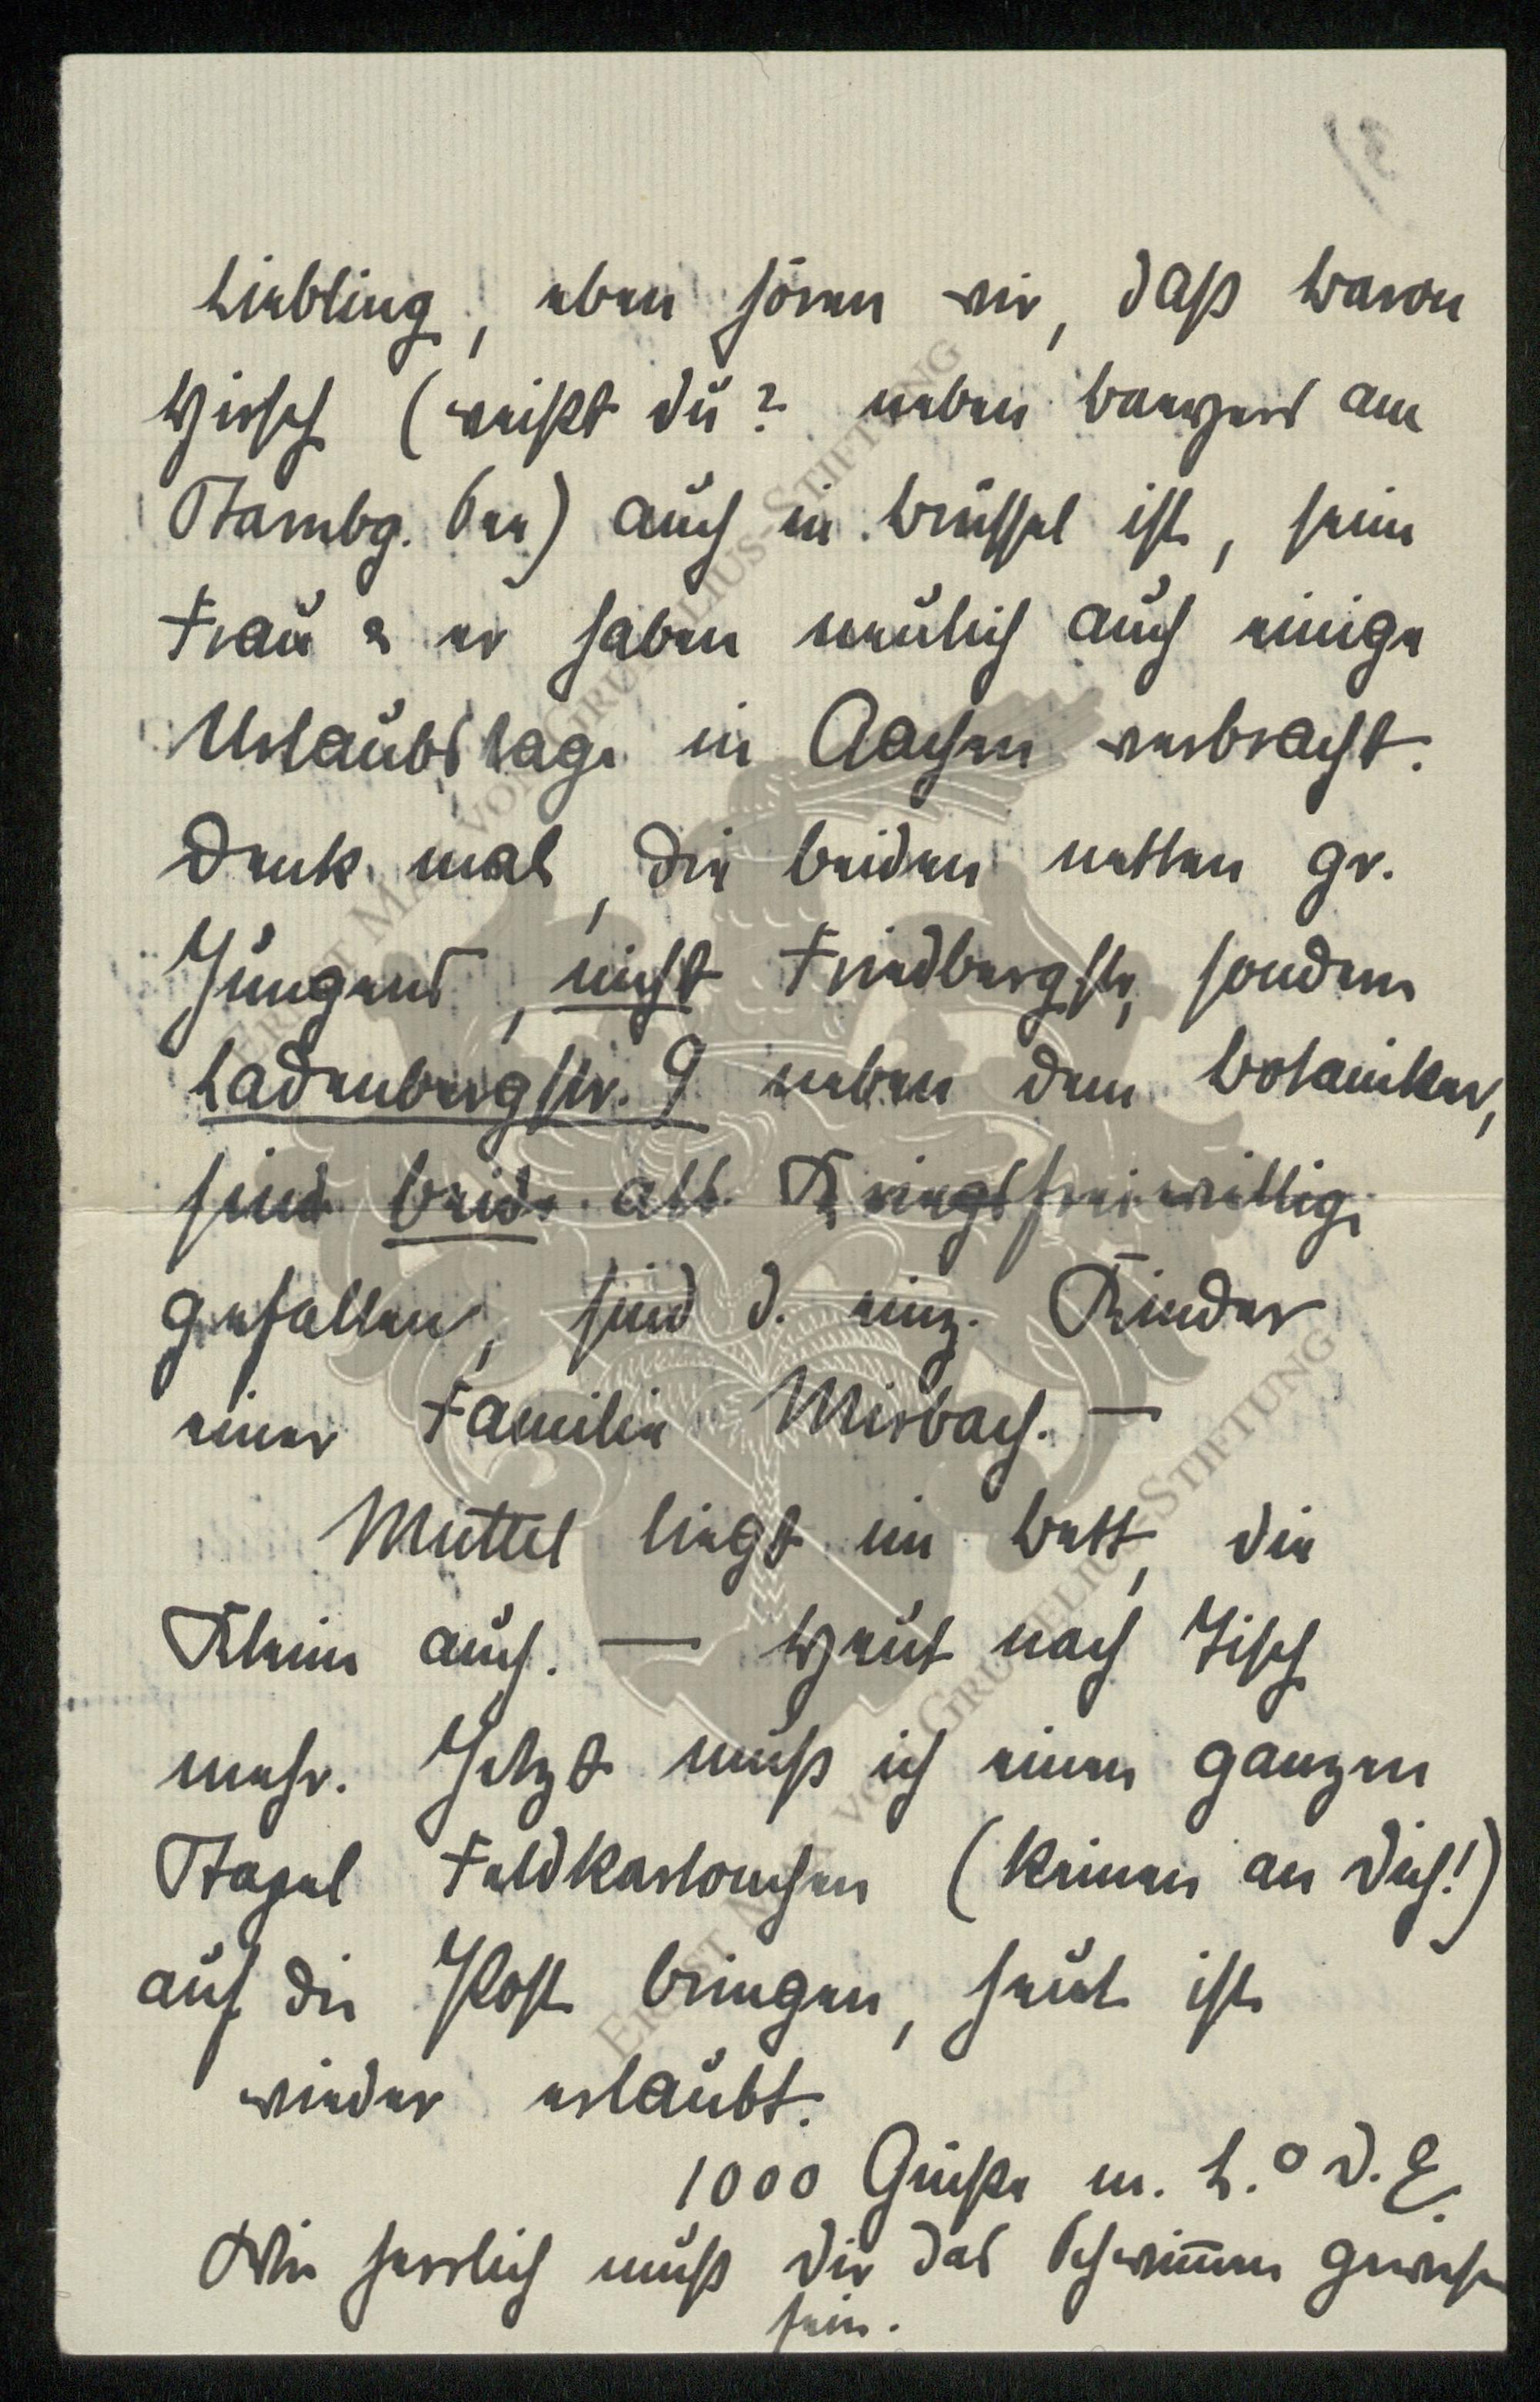 Liebling, eben hören wir, daß Baron
Hirsch (weißt Du? neben Bangers am
Starnbg. See) auch in Brüssel ist, seine
Frau & er haben neulich auch einige
Urlaubstage in Aachen verbracht.
Denk mal, die beiden netten gr.
Jungens, nicht Friedbergstr, sondern
Ladenbergstr. 9 neben dem Botaniker,
sind beide als Kriegsfreiwillige
gefallen, sind d. einz. Kinder
einer Familie Mirbach. —
Muttel liegt im Bett, die
Kleine auch. — Heut nach Tisch
mehr. Jetzt muß ich einen ganzen
Stapel Feldkartonchen (keinen an Dich!)
auf die Post bringen, heut ist
wieder erlaubt.
1000 Grüße m. L.° D. E.
Wie herrlich muß Dir das Schwim̅en gewesen
sein.
ERNST MAX VON GRUNELIUS-STIFTUNG
ERNST MAX VON GRUNELIUS-STIFTUNG